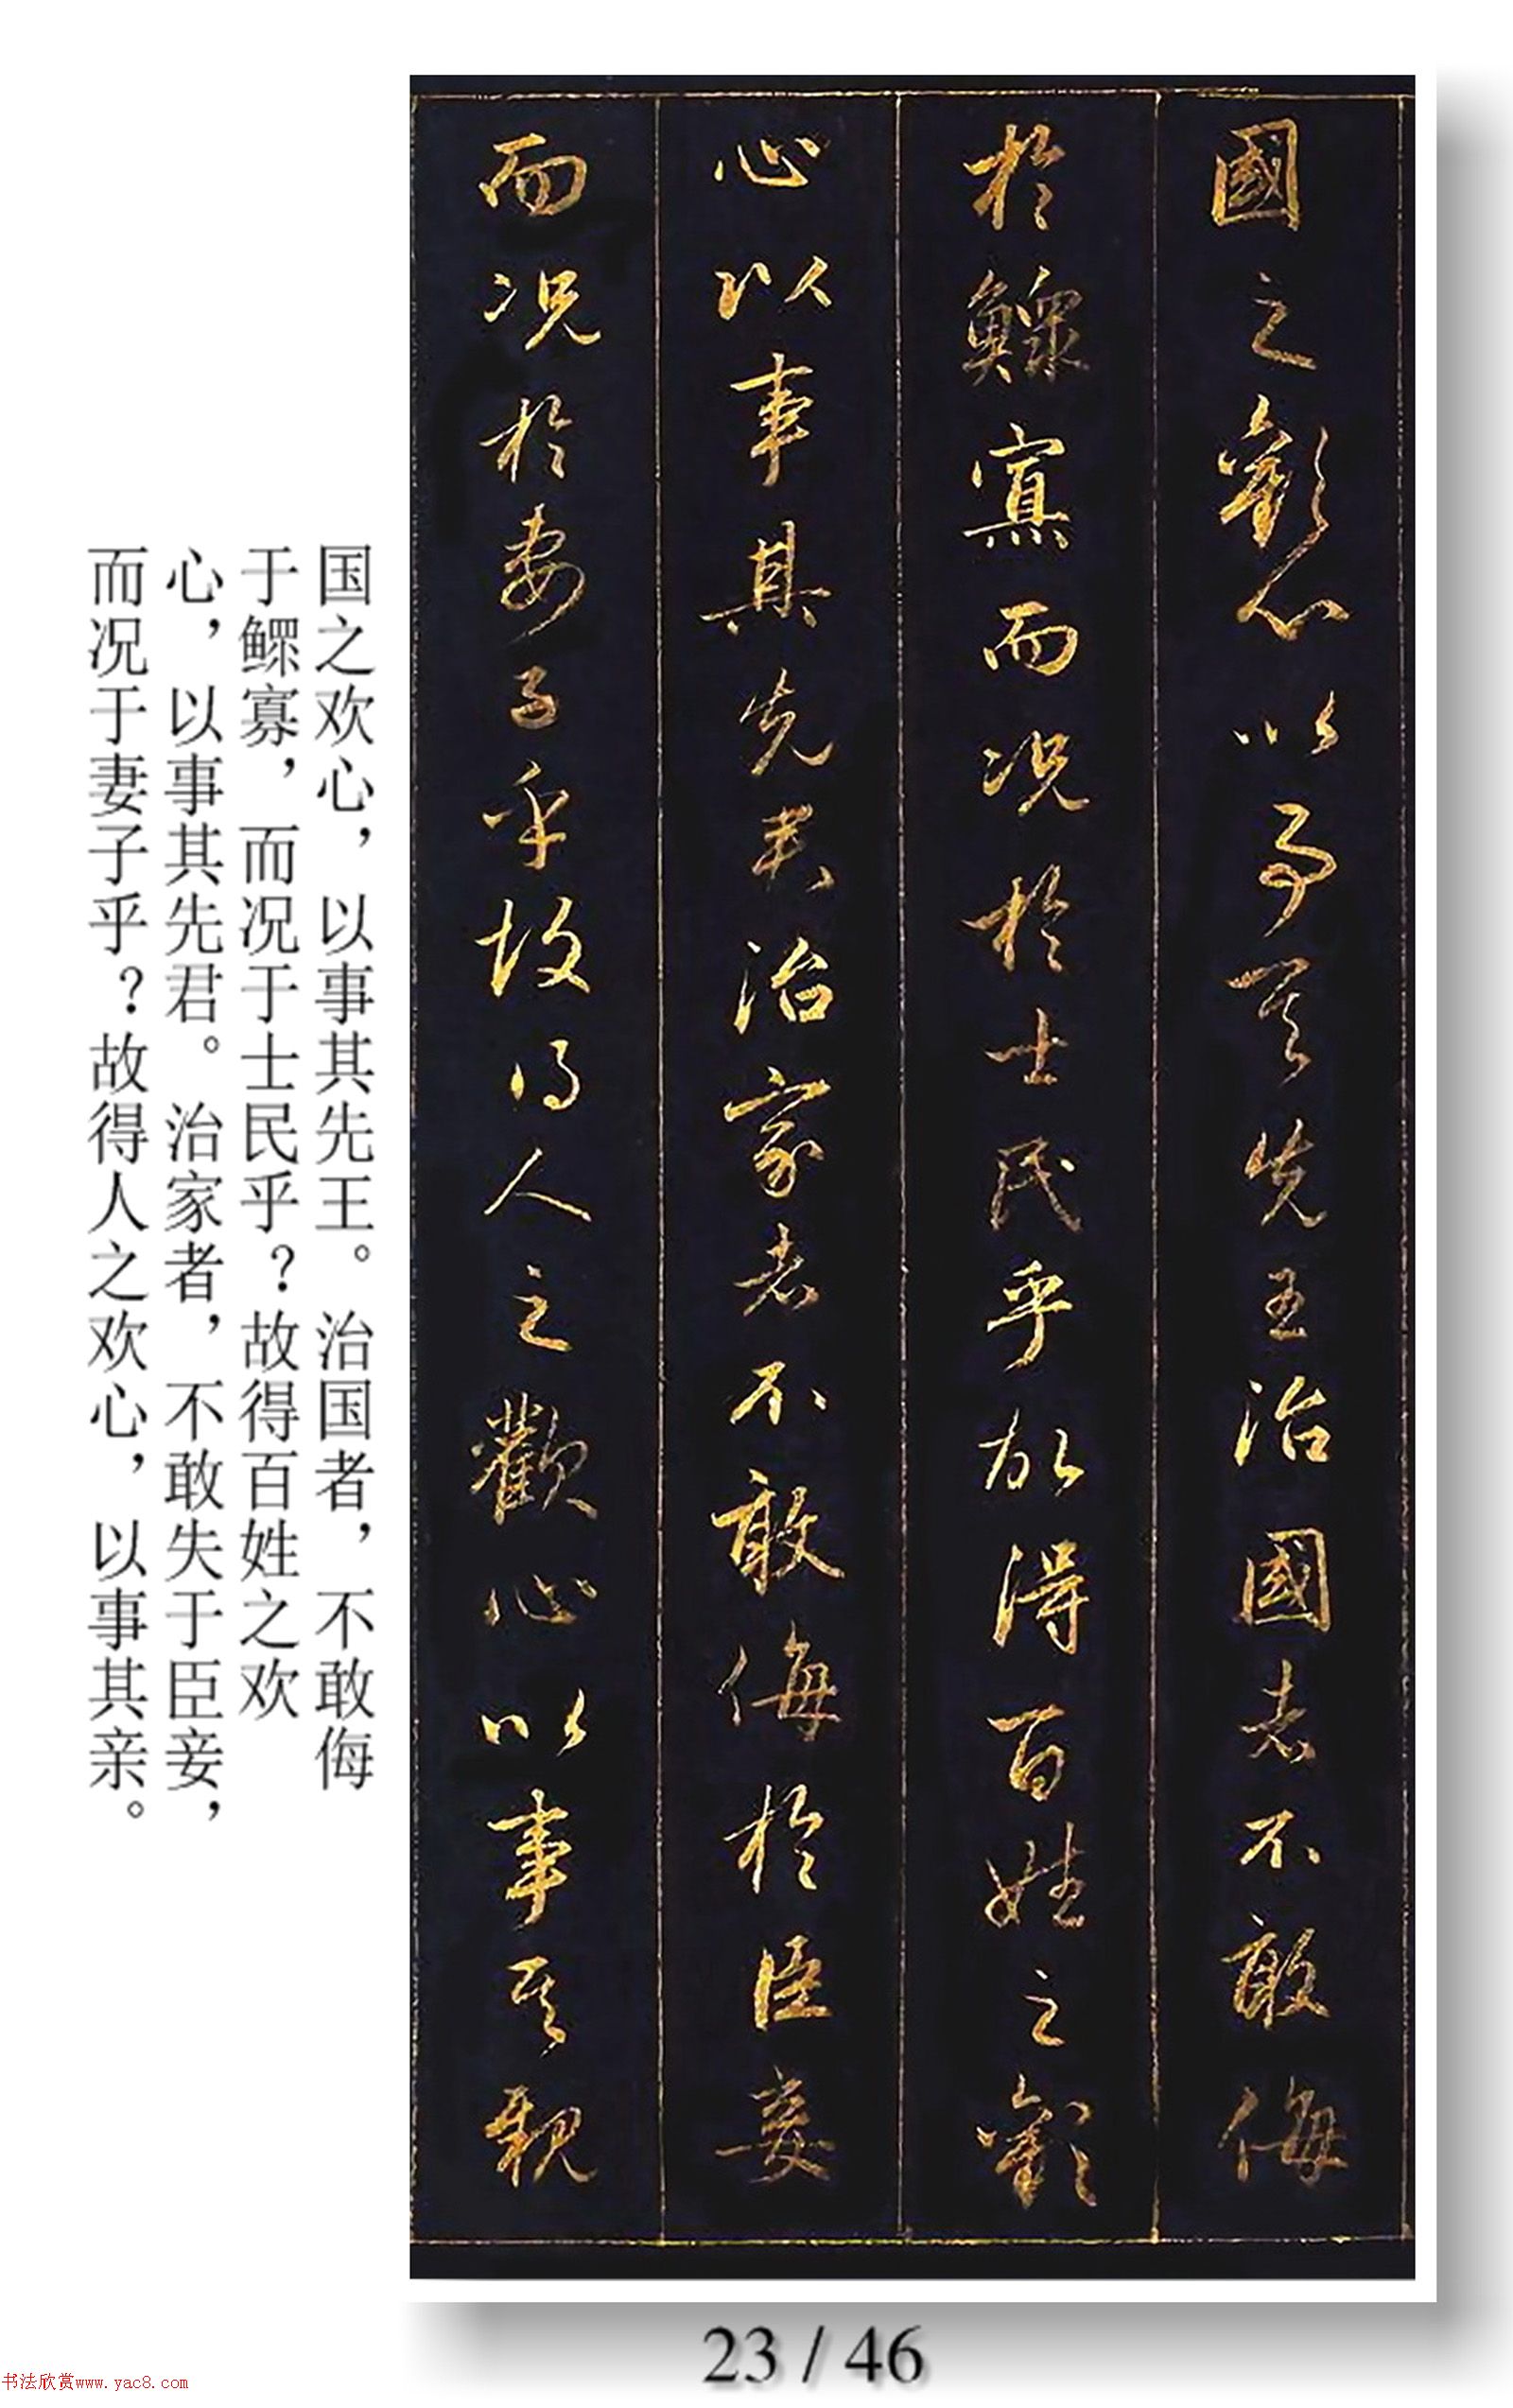 國之歡心以事其先王治國者不敢侮
於鰥寡而况於士民乎故得百姓之歡
心以事其先君治家者不敢侮於臣妾
而况於妻子乎故得人之歡心以事其親
国之欢心，以事其先王。治国者，不敢侮
于鳏寡，而况于士民乎？故得百姓之欢
心，以事其先君。治家者，不敢失于臣妾，
而况于妻子乎？故得人之欢心，以事其亲。
23 / 46
书法欣赏www.yac8.com